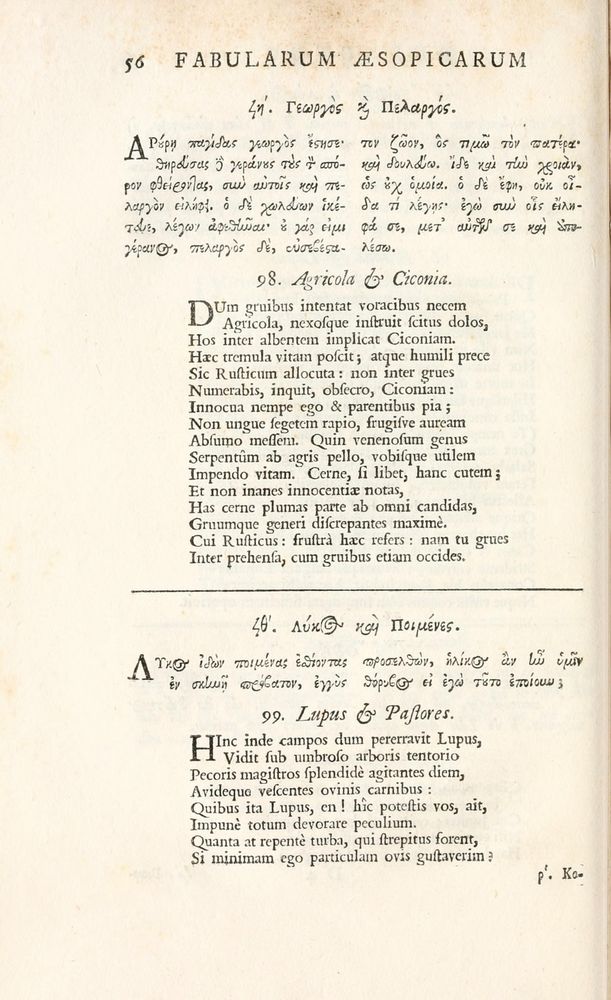 56 FABULARUM ÆSOPICARUM
ζή. Γεωργὸς καὶ Πελαργός.
ΑΡούρῃ παγίδας γεωργὸς ἔστησε·
θηρεύσας δὲ γεράνους τοὺς τὸν σπό-
ρον φθείροντας, σὺν αὐτοῖς καὶ πε-
λαργὸν εἰλήφει. ὁ δὲ χωλεύων ἱκέ-
τευε, λέγων ἀφεθῆναι· οὐ γάρ εἰμι
γέρανος, πελαργὸς δέ, εὐσεβέστα-
τον ζῶον, ὃς τιμῶ τὸν πατέρα·
καὶ δουλεύω. ἴδε καὶ τὴν χροιὰν,
ὡς οὐχ ὁμοία. ὁ δὲ ἔφη, οὐκ οἶ-
δα τί λέγῃς· ἐγὼ σὺν οἷς εἴλη-
φά σε, μετ' αὐτῶν σε καὶ ἀπο-
λέσω.
98. Agricola & Ciconia.
DUm gruibus intentat voracibus necem
Agricola, nexoſque inſtruit ſcitus dolos,
Hos inter albentem implicat Ciconiam.
Hæc tremula vitam poſcit; atque humili prece
Sic Ruſticum allocuta: non inter grues
Numerabis, inquit, obſecro, Ciconiam:
Innocua nempe ego & parentibus pia;
Non ungue ſegetem rapio, frugiſve auream
Abſumo meſſem. Quin venenoſum genus
Serpentûm ab agris pello, vobiſque utilem
Impendo vitam. Cerne, ſi libet, hanc cutem;
Et non inanes innocentiæ notas,
Has cerne plumas parte ab omni candidas,
Gruumque generi diſcrepantes maximè.
Cui Ruſticus: fruſtrà hæc refers: nam tu grues
Inter prehenſa, cum gruibus etiam occides.
ζθ'. Λύκος καὶ Ποιμένες.
ΛΥκος ἰδὼν ποιμένας ἐσθίοντας
ἐν σκηνῇ πρόβατον, ἐγγὺς
προσελθὼν, ἡλίκος ἂν ἦν ὑμῖν
θόρυβος εἰ ἐγὼ τοῦτο ἐποίουν;
99. Lupus & Paſtores.
HInc inde campos dum pererravit Lupus,
Vidit ſub umbroſo arboris tentorio
Pecoris magiſtros ſplendidè agitantes diem,
Avideque veſcentes ovinis carnibus:
Quibus ita Lupus, en! hîc poteſtis vos, ait,
Impunè totum devorare peculium.
Quanta at repentè turba, qui ſtrepitus forent,
Si minimam ego particulam ovis guſtaverim?
ρ'. Κο-